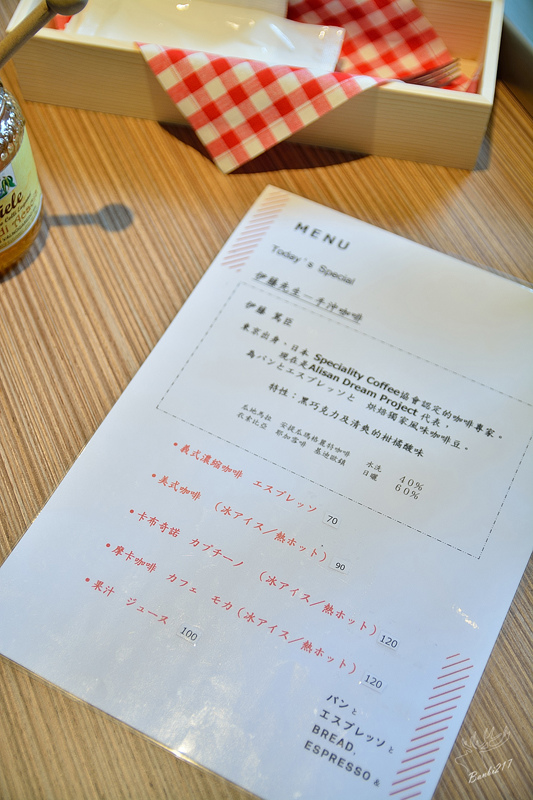 MENU
Today's Special
伊藤先生－手沖咖啡
伊藤 篤臣
東京出身，日本 Speciality Coffee協會認定的咖啡專家。
現在是Alisan Dream Project 代表，
為パンとエスプレッソと 烘焙獨家風味咖啡豆。
特性：黑巧克力及清爽的柑橘酸味
瓜地馬拉 安提瓜瑪格麗特咖啡 水洗 40%
衣索比亞 耶加雪啡 基迪歐鎮 日曬 60%
•義式濃縮咖啡 エスプレッソ 70
•美式咖啡 （冰アイス／熱ホット） 90
•卡布奇諾 カプチーノ （冰アイス／熱ホット） 120
•摩卡咖啡 カフェ モカ（冰アイス／熱ホット） 120
•果汁 ジュース 100
パンと
エスプレッソと
BREAD,
ESPRESSO &
Benbi217